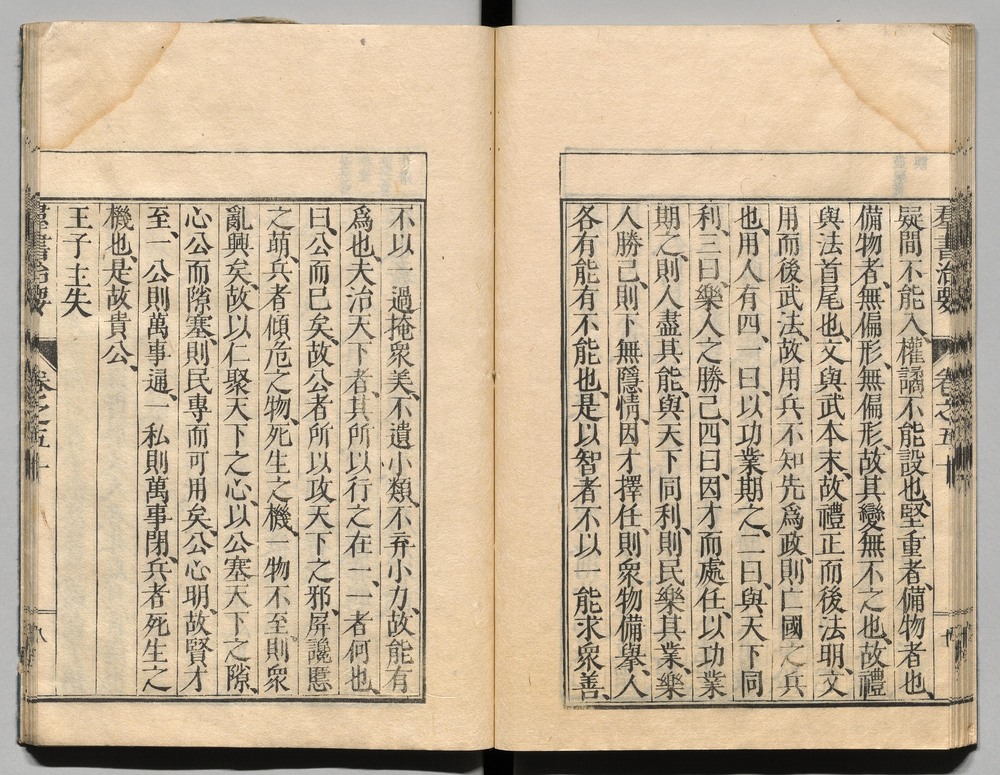 羣書治要　卷之五十
疑間不能入、權譎不能設也、堅重者、備物者也、
備物者、無偏形、無偏形、故其變無不之也、故禮
與法首尾也、文與武本末、故禮正而後法明、文
用而後武法、故用兵不知先爲政、則亡國之兵
也、用人有四、一曰、以功業期之、二曰、與天下同
利、三曰、樂人之勝己、四曰、因才而處任、以功業
期之、則人盡其能、與天下同利、則民樂其業、樂
人勝己、則下無隱情、因才擇任、則衆物備舉、人
各有能有不能也、是以智者不以一能求衆善、
不以一過掩衆美、不遺小類、不弃小力、故能有
爲也、夫治天下者、其所以行之在一、一者何也、
曰、公而已矣、故公者所以攻天下之邪、屏讒慝
之萌、兵者傾危之物、死生之機、一物不至、則衆
亂興矣、故以仁聚天下之心、以公塞天下之隙、
心公而隙塞、則民專而可用矣、公心明、故賢才
至、一公則萬事通、一私則萬事閉、兵者死生之
機也、是故貴公、
王子主失
羣書治要　卷之五十　八